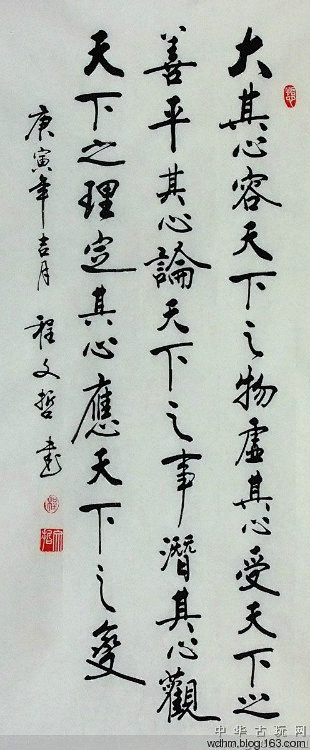 大其心容天下之物虚其心受天下之
善平其心論天下之事潛其心觀
天下之理定其心應天下之變
庚寅年吉月 程文哲書
中华古玩网
wdhm.blog.163.com